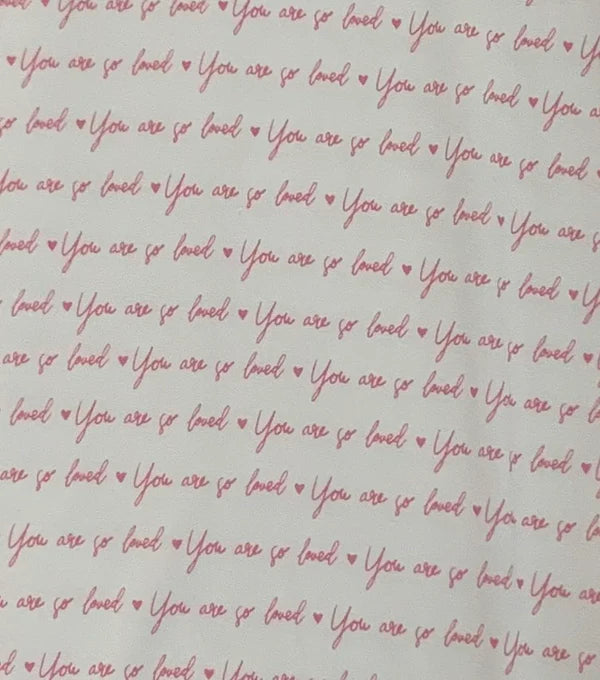 You are so loved ♥ You are so loved ♥ You
♥ You are so loved ♥ You are so loved ♥ You are so loved ♥ You
so loved ♥ You are so loved ♥ You are so loved ♥ You are so loved
You are so loved ♥ You are so loved ♥ You are so loved ♥ You are
loved ♥ You are so loved ♥ You are so loved ♥ You are so loved ♥
loved ♥ You are so loved ♥ You are so loved ♥ You are so loved ♥
are so loved ♥ You are so loved ♥ You are so loved ♥ You are so
loved ♥ You are so loved ♥ You are so loved ♥ You are so loved ♥
are so loved ♥ You are so loved ♥ You are so loved ♥ You are so
You are so loved ♥ You are so loved ♥ You are so loved ♥ You are
are so loved ♥ You are so loved ♥ You are so loved ♥ You are so
♥ You are so loved ♥ You